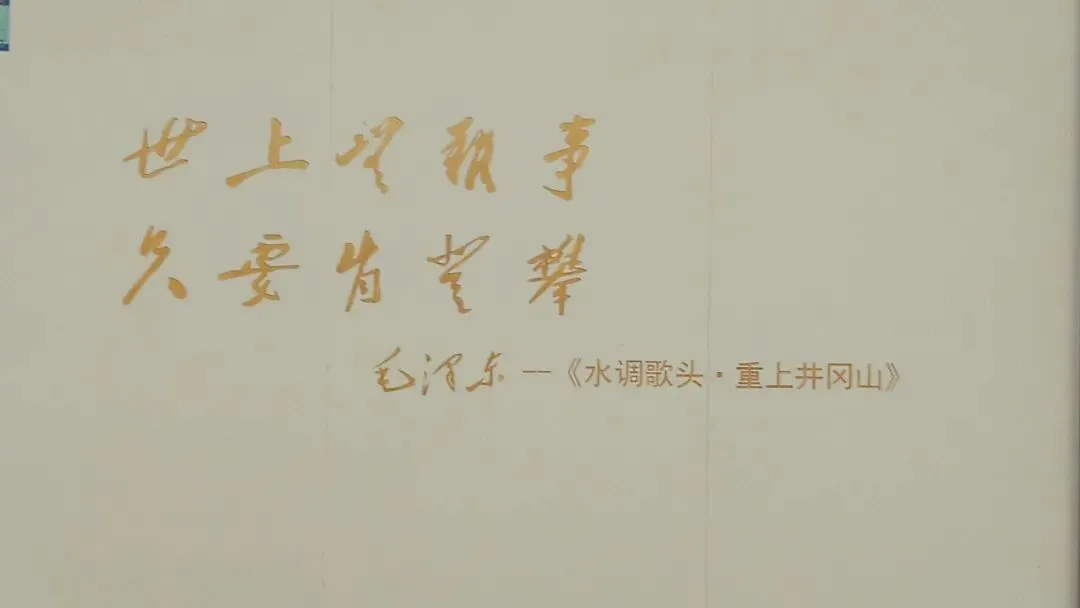 世上無難事
只要肯登攀
毛泽东 —《水调歌头·重上井冈山》